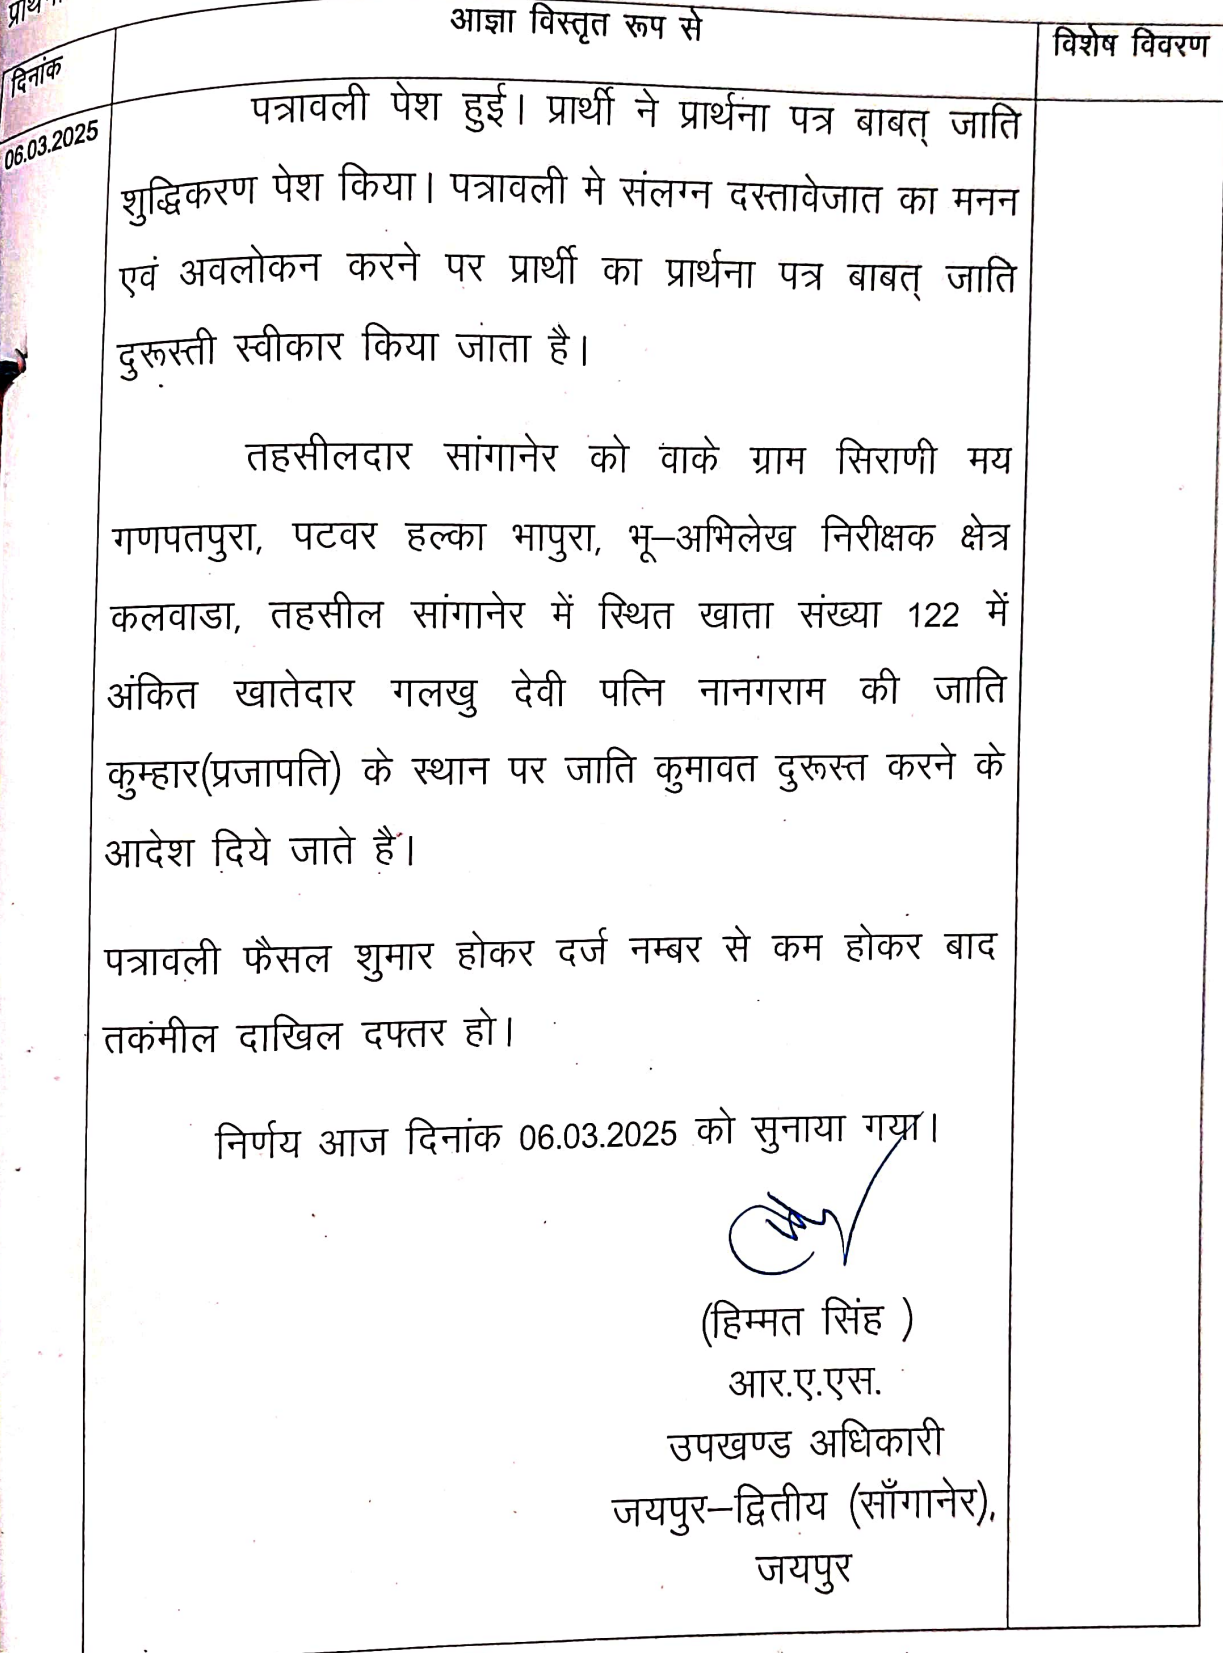 आज्ञा विस्तृत रूप से
विशेष विवरण
दिनांक
06.03.2025
पत्रावली पेश हुई। प्रार्थी ने प्रार्थना पत्र बाबत् जाति
शुद्धिकरण पेश किया। पत्रावली मे संलग्न दस्तावेजात का मनन
एवं अवलोकन करने पर प्रार्थी का प्रार्थना पत्र बाबत् जाति
दुरूस्ती स्वीकार किया जाता है।
तहसीलदार सांगानेर को वाके ग्राम सिराणी मय
गणपतपुरा, पटवर हल्का भापुरा, भू–अभिलेख निरीक्षक क्षेत्र
कलवाडा, तहसील सांगानेर में स्थित खाता संख्या 122 में
अंकित खातेदार गलखु देवी पत्नि नानगराम की जाति
कुम्हार(प्रजापति) के स्थान पर जाति कुमावत दुरूस्त करने के
आदेश दिये जाते है।
पत्रावली फैसल शुमार होकर दर्ज नम्बर से कम होकर बाद
तकमील दाखिल दफ्तर हो।
निर्णय आज दिनांक 06.03.2025 को सुनाया गया।
(हिम्मत सिंह )
आर.ए.एस.
उपखण्ड अधिकारी
जयपुर–द्वितीय (साँगानेर),
जयपुर